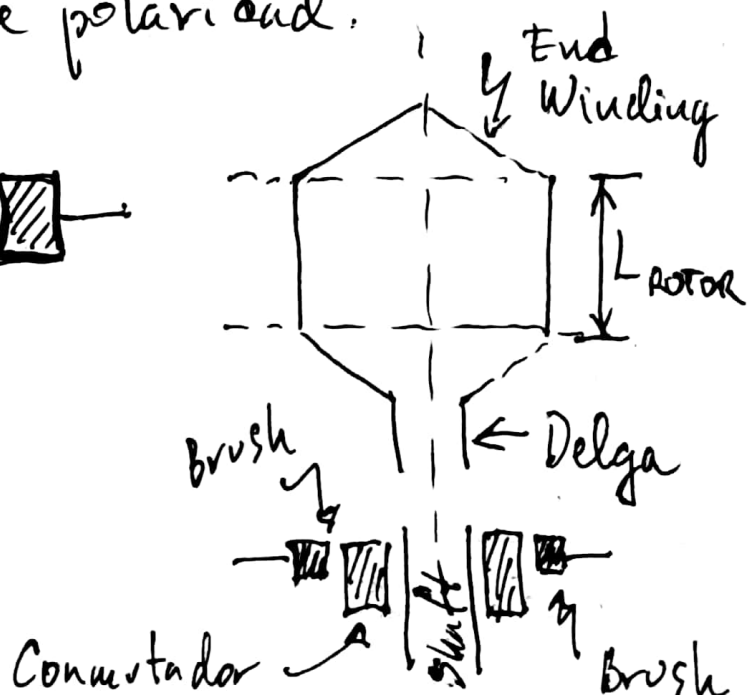 e polaridad.
End
Winding
L ROTOR
Brush
Delga
Shaft
Conmutador
Brush